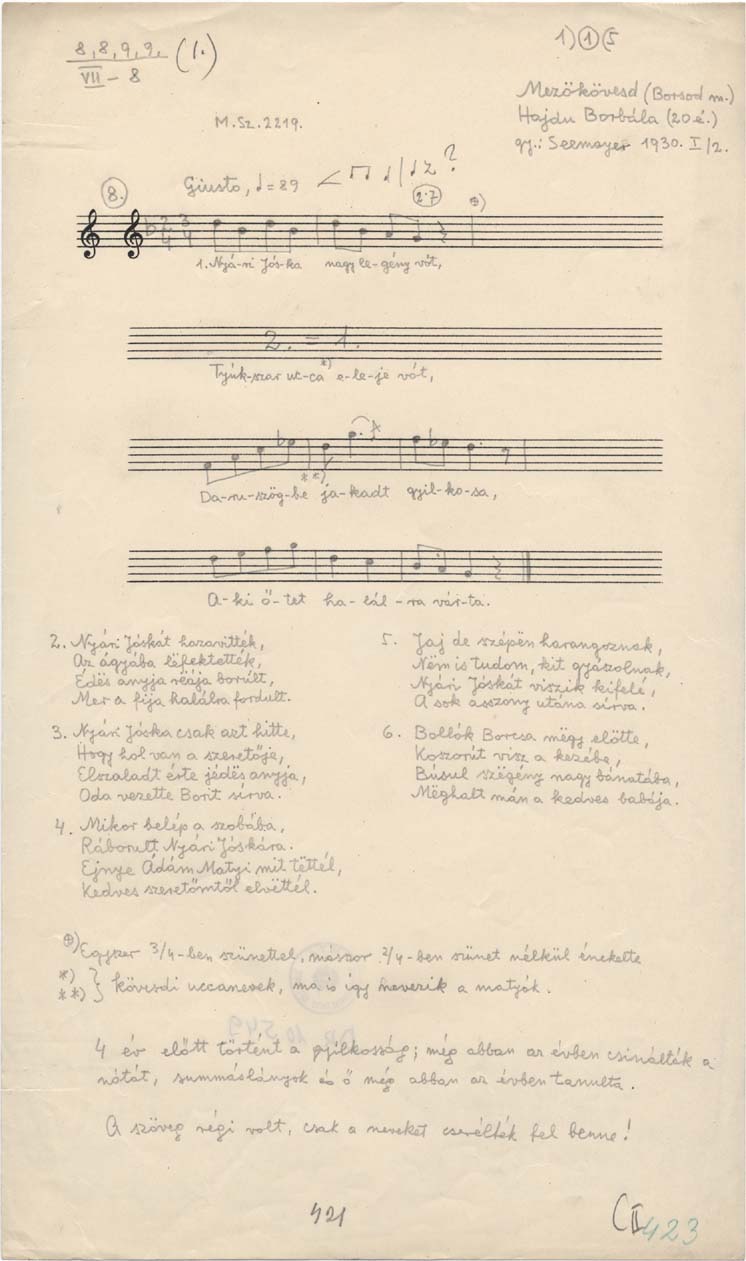 8, 8, 9, 9. (1.)
VII - 8
1) 1 (5
Mezőkövesd (Borsod m.)
Hajdu Borbála (20 é.)
gy.: Seemayer 1930. I/2.
M. Sz. 2219.
8.
Giusto, ♩=89
?
2·7
⊕)
2 3
4 4
1. Nyá-ri Jós-ka nagy le-gény vót,
2. = 1.
Tyúk-szar uc-ca *) e-le-je vót,
**)
Da-ru-szög-be ja-kadt gyil-ko-sa,
A-ki ő-tet ha-lál-ra vár-ta.
2. Nyári Jóskát hazavitték,
Az ágyába lëfektették,
Édës anyja réája borúlt,
Mer a fija halálra fordult.
3. Nyári Jóska csak azt hitte,
Hogy hol van a szeretője,
Elszaladt érte jédës anyja,
Oda vezette Borit sírva.
4. Mikor belép a szobába,
Ráborult Nyári Jóskára.
Ejnye Ádám Matyi mit tëttél,
Kedves szeretőmtől elvëttél.
5. Jaj de szépën harangoznak,
Nëm is tudom, kit gyászolnak,
Nyári Jóskát viszik kifelé,
A sok asszony utána sírva.
6. Bollók Borcsa mëgy előtte,
Koszorút visz a kezébe,
Búsul szëgény nagy bánatába,
Mëghalt mán a kedves babája.
⊕) Egyszer 3/4-ben szünettel, másszor 2/4-ben szünet nélkül énekelte
*)
**) } kövesdi uccanevek, ma is így nevezik a matyók.
4 év előtt történt a gyilkosság; még abban az évben csinálták a
nótát, summáslányok és ő még abban az évben tanulta.
A szöveg régi volt, csak a neveket cserélték fel benne!
421
(II
423